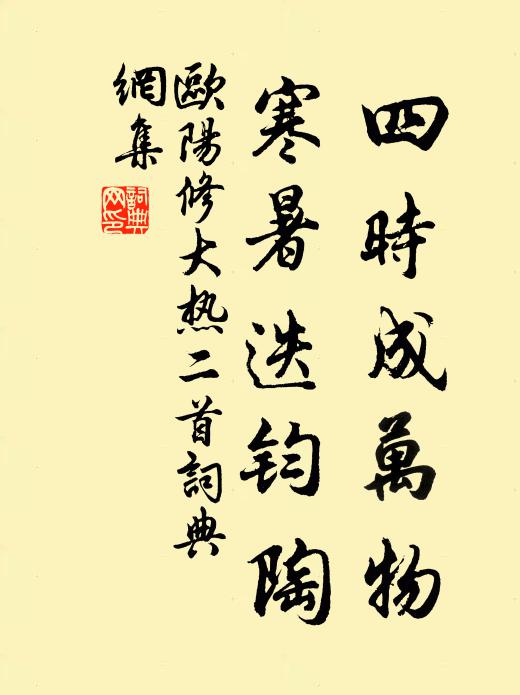 四時成萬物
寒暑迭鈞陶
歐陽修大热二首詞典
網集
詞典
网印